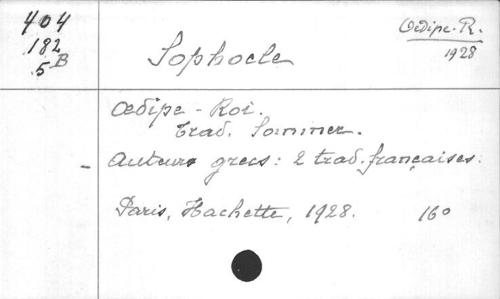 404
182
5 B
Oedipe-R.
1928
Sophocle
Œdipe-Roi.
trad. Sommer.
- Auteurs grecs: 2 trad. françaises.
Paris, Hachette, 1928. 16°